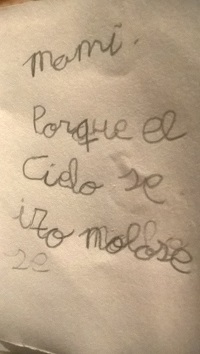 mami.
Porque el
Cielo se
izo molose
se